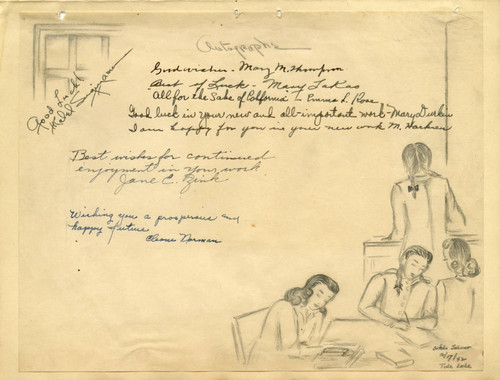 Autographs
Good wishes - Mary M. Thompson
Best of Luck - Mary Takao
All for the Sake of California - L. Rose
Good luck in your new and all-important work - Mary Durkin
I am happy for you in your new work M.
Good Luck!
Best wishes for continued
enjoyment in your work
Jane E. Zink
Wishing you a prosperous and
happy future
Cleone Norman
Tule Lake